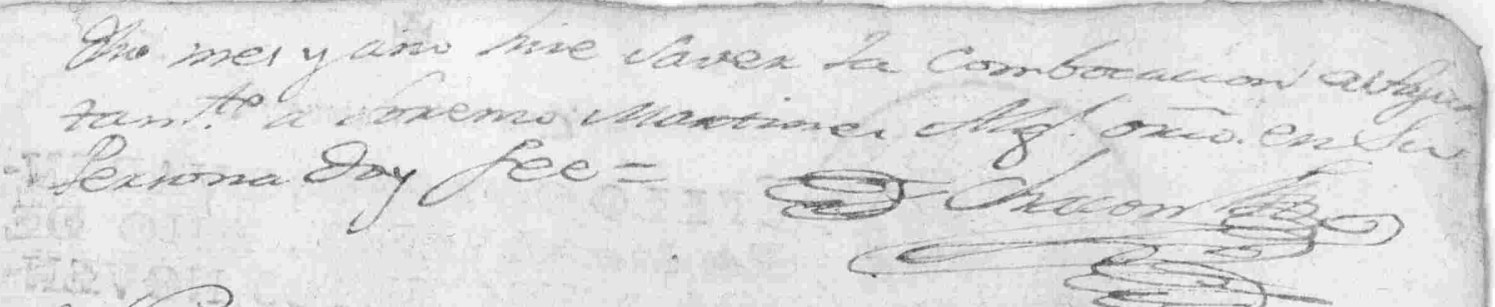 dho mes y año hize saver la Combocacion a este Ayun
tam.to a Lorenzo Martinez Alg.l orno. en Su
Persona Doy fee =
Chacon